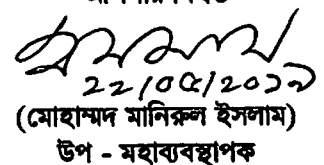 ২২/০৫/২০১৯
(মোহাম্মদ মানিরুল ইসলাম)
উপ - মহাব্যবস্থাপক